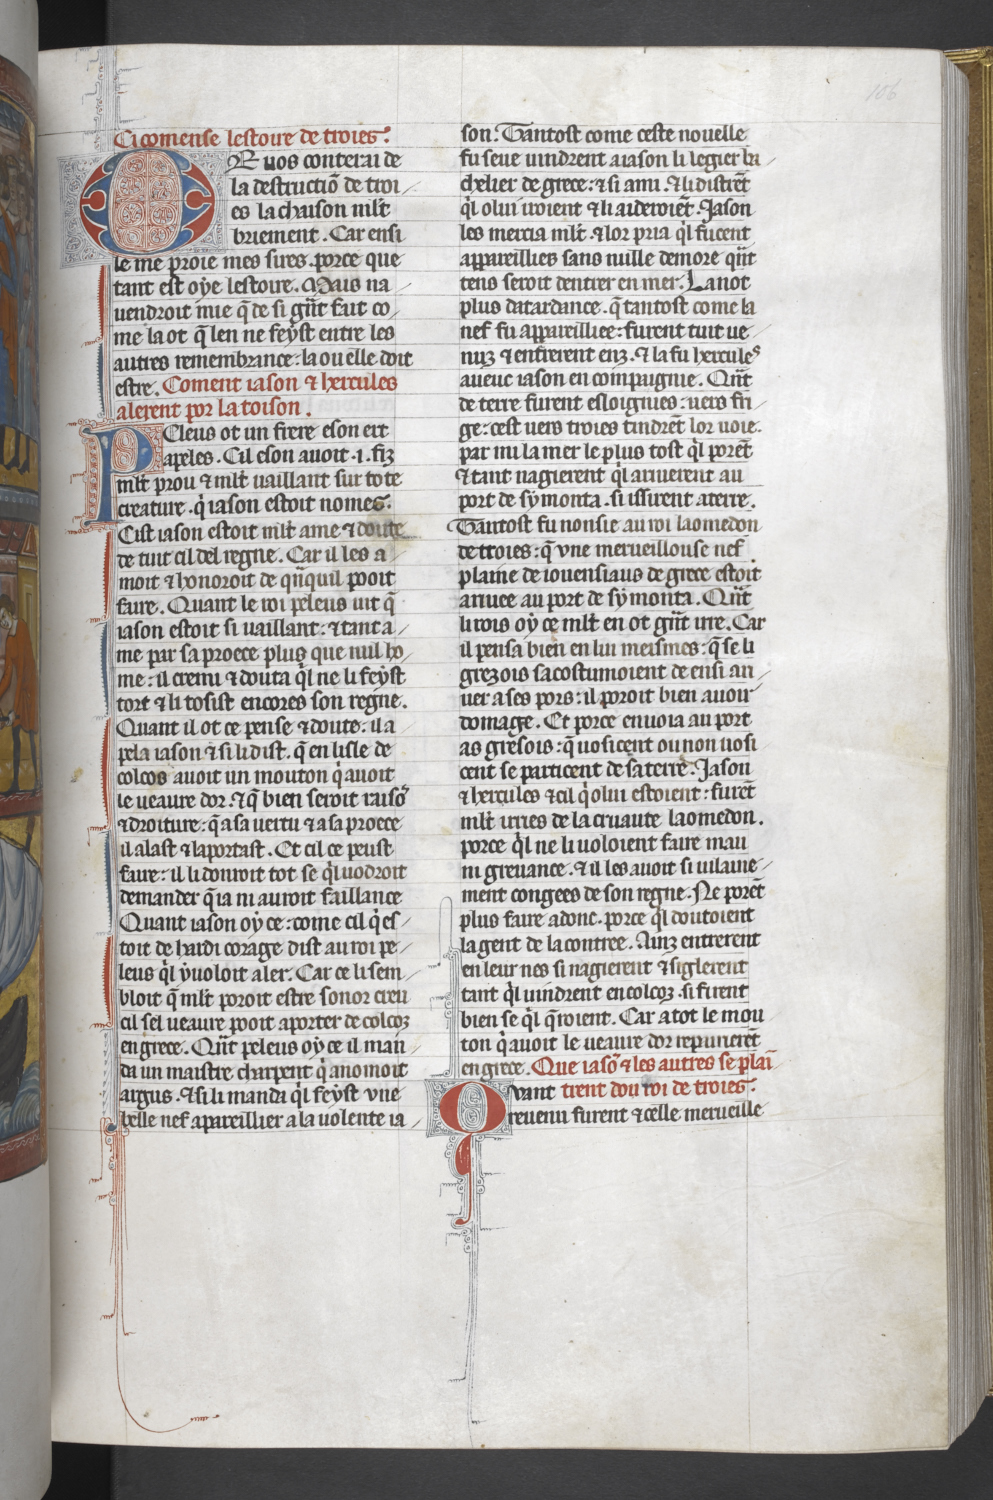 Ci comense lestoire de troies.
OR vos conterai de
la destructiõ de troi
es la chaison mlt
briement. Car ensi
le me proie mes sires. porce que
tant est oye lestoire. Mais na
uendroit mie q̃ de si gñt fait co
me la ot q̃ len ne feyst entre les
autres remembrance. la ou elle doit
estre. Coment iason & hercules
alerent por la toison.
Peleus ot un frere eson ert
apeles. Cil eson auoit .i. fiz
mlt prou & mlt uaillant sur tote
creature. q̇ iason estoit nomes.
Cist iason estoit mlt ame & doute
de tuit cil del regne. Car il les a
moit & honoroit de qñquil pooit
faire. Quant le roi peleus uit q̃
iason estoit si uaillant. & tant a
me par sa proece plus que nul ho
me. il cremi & douta ql ne li feyst
tort & li tosist encores son regne.
Quant il ot ce pense & doute. il a
pela iason & si li dist. q̃ en lisle de
colcos auoit un mouton q̇ auoit
le ueaure dor. & q̃ bien seroit raisõ
& droiture. q̃ a sa uertu & a sa proece
il alast & laportast. Et cil ce peust
faire. il li donroit tot se ql uodroit
demander q̃ ia ni auroit faillance
Quant iason oy ce. come cil q̇ es
toit de hardi corage dist au roi pe
leus ql y uoloit aler. Car ce li sem
bloit q̃ mlt poroit estre sonor creu
cil sel ueaure pooit aporter de colcoz
en grece. Qñt peleus oy ce il man
da un maistre charpent q̇ a nomoit
argus. & si li manda ql feyst une
belle nef apareillier a la uolente ia
son. Tantost come ceste nouelle
fu seue uindrent a iason li legier ba
chelier de grece. & si ami. & li distrẽt
ql o lui iroient & li aideroiẽt. Jason
les mercia mlt. & lor pria ql fucent
appareillies sans nulle demore qñt
tens seroit dentrer en mer. La not
plus datardance. q̃ tantost come la
nef fu appareilliee. furent tuit ue
nuz & entrerent enz. & la fu hercules
aueuc iason en compaignie. Qñt
de terre furent esloignies. uers fri
ge. cest uers troies tindrẽt lor uoie.
par mi la mer le plus tost ql porẽt
& tant nagierent ql ariuerent au
port de symonta. si issirent a terre.
Tantost fu nonsie au roi laomedon
de troies. q̃ une merueillouse nef
plaine de iouensiaus de grece estoit
ariuee au port de symonta. Qñt
li rois oy ce mlt en ot gñt ire. Car
il pensa bien en lui meismes. q̃ se li
grezois sacostumoient de ensi ari
uer a ses pors. il poroit bien auoir
domage. Et porce enuoia au port
as gresois. q̃ uosicent ou non uosi
cent se particent de sa terre. Jason
& hercules & cil q̇ o lui estoient. furẽt
mlt iries de la cruaute laomedon.
porce ql ne li uoloient faire mau
ni greuance. & il les auoit si uilaine
ment congees de son regne. Ne porẽt
plus faire adonc. porce ql doutoient
la gent de la contree. Ainz entrerent
en leur nes si nagierent & siglerent
tant ql uindrent en colcoz. si firent
bien se ql q̃roient. Car a tot le mou
ton q̇ auoit le ueaure dor repairerẽt
en grece. Que iasõ & les autres se plai
Quant trent dou roi de troies.
reuenu furent & celle merueille